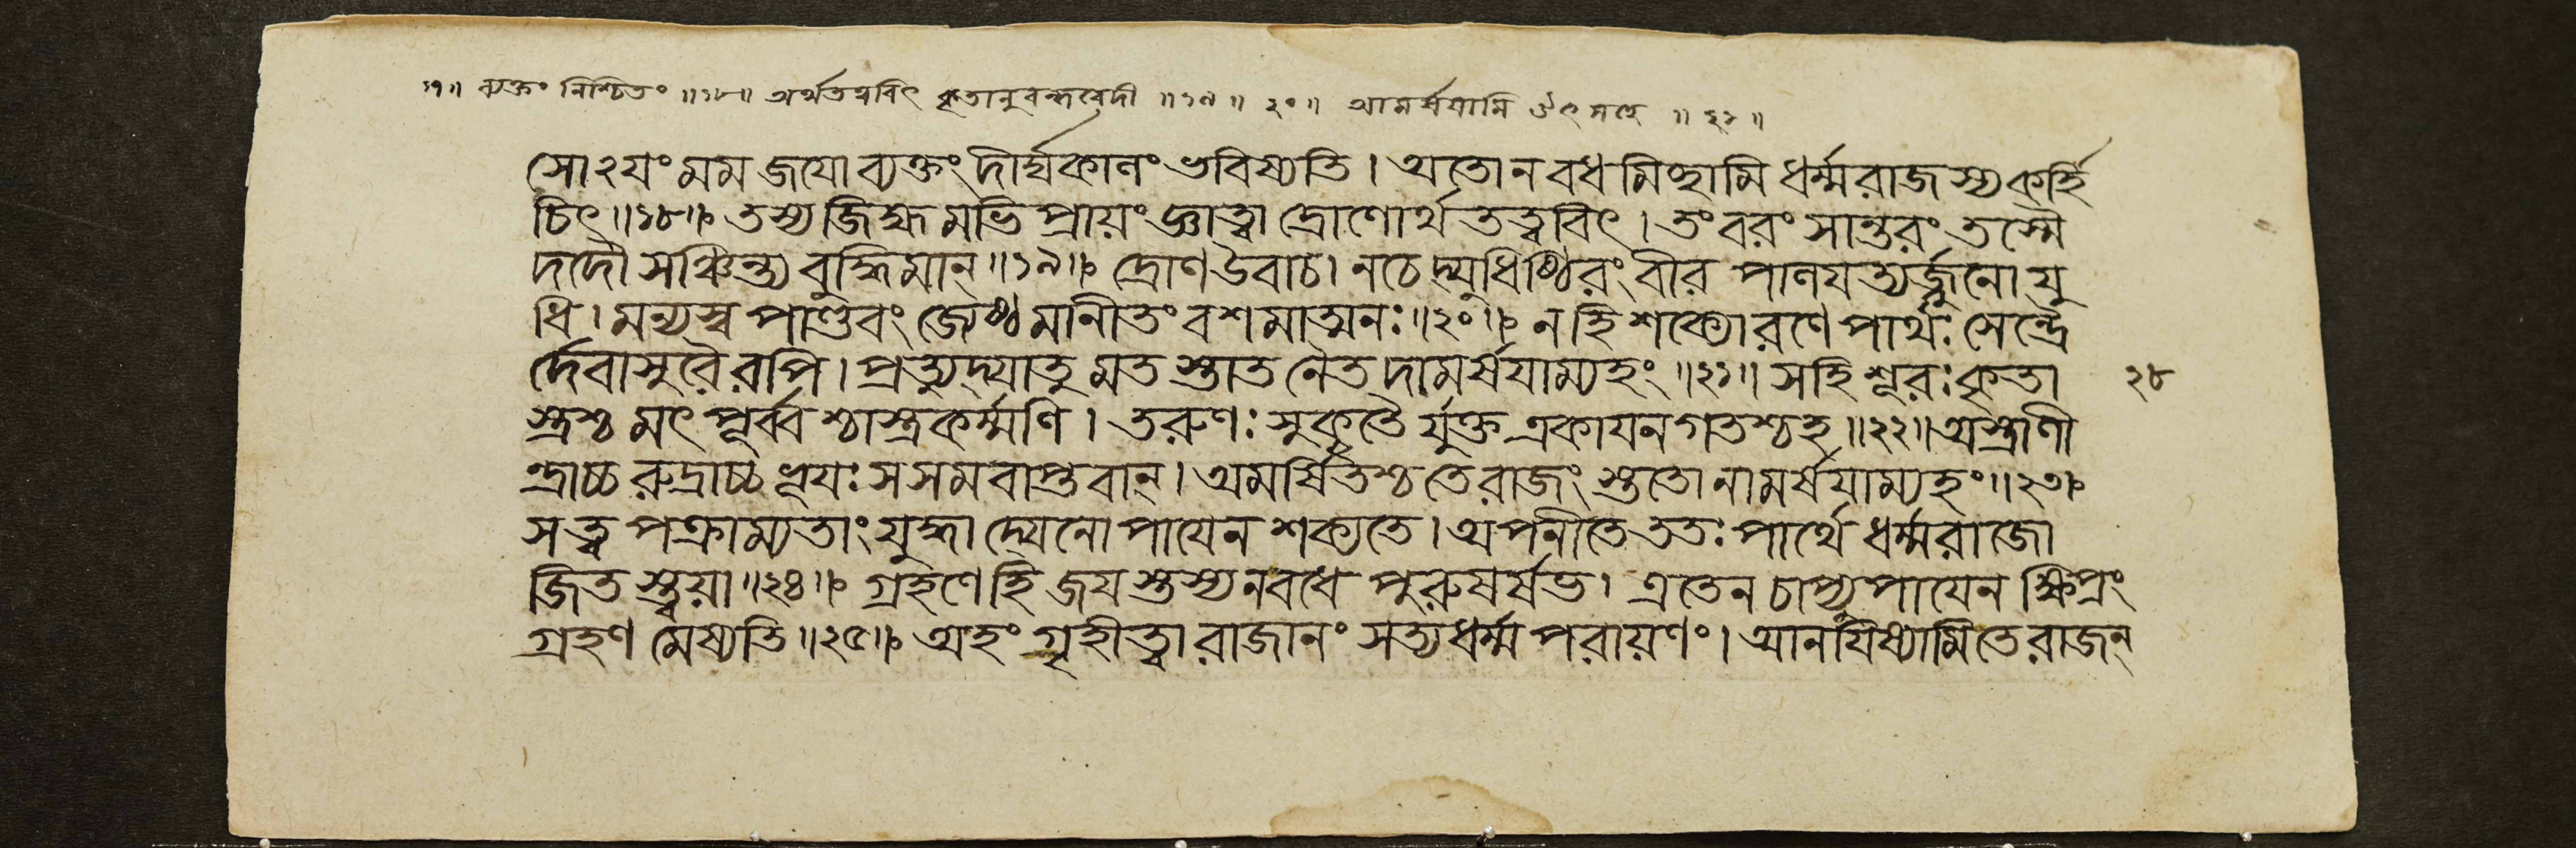 ১৭॥ ব্যক্তং নিশ্চিতং ॥১৮॥ অর্থতত্ত্ববিৎ কৃতানুবন্ধবেদী ॥১৯॥ ২০॥ আমর্ষযামি উৎসহে ॥ ২১॥
সোঽযং মম জযো ব্যক্তং দীর্ঘকালং ভবিষ্যতি। অতো ন বধমিচ্ছামি ধর্ম্মরাজস্য কর্হি
চিৎ॥১৮॥ তস্য জিহ্মমভিপ্রায়ং জ্ঞাত্বা দ্রোণোর্থতত্ত্ববিৎ। তং বরং সান্তরং তস্মৈ
দদৌ সঞ্চিন্ত্য বুদ্ধিমান্॥১৯॥ দ্রোণ উবাচ। নচেদ্যুধিষ্ঠিরং বীর পালযত্যর্জ্জুনো যু
ধি। মন্যস্ব পাণ্ডবং জ্যেষ্ঠমানীতং বশমাত্মনঃ॥২০॥ নহি শক্যো রণে পার্থঃ সেন্দ্রৈ
র্দেবাসুরৈরপি। প্রত্যুদ্যাতুমতস্তাত নৈতদামর্ষযাম্যহং॥২১॥ সহি শূরঃ কৃতা ২৮
স্ত্রশ্চ মৎপূর্ব্বশ্চাস্ত্রকর্ম্মণি। তরুণঃ সুকৃতৈর্যুক্ত একাযনগতশ্চহ॥২২॥ অস্ত্রাণী
ন্দ্রাচ্চ রুদ্রাচ্চ ভূযঃ স সমবাপ্তবান্। অমর্ষিতশ্চ তে রাজংস্ততো নামর্ষযাম্যহং॥২৩॥
সত্বপক্রাম্যতাং যুদ্ধাদ্যেনোপাযেন শক্যতে। অপনীতে ততঃ পার্থে ধর্ম্মরাজো
জিতস্ত্বয়া॥২৪॥ গ্রহণে হি জযস্তস্য ন বধে পুরুষর্ষভ। এতেন চাপ্যুপাযেন ক্ষিপ্রং
গ্রহণমেষ্যতি॥২৫॥ অহং গৃহীত্বা রাজানং সত্যধর্ম্মপরায়ণং। আনযিষ্যামি তে রাজন্